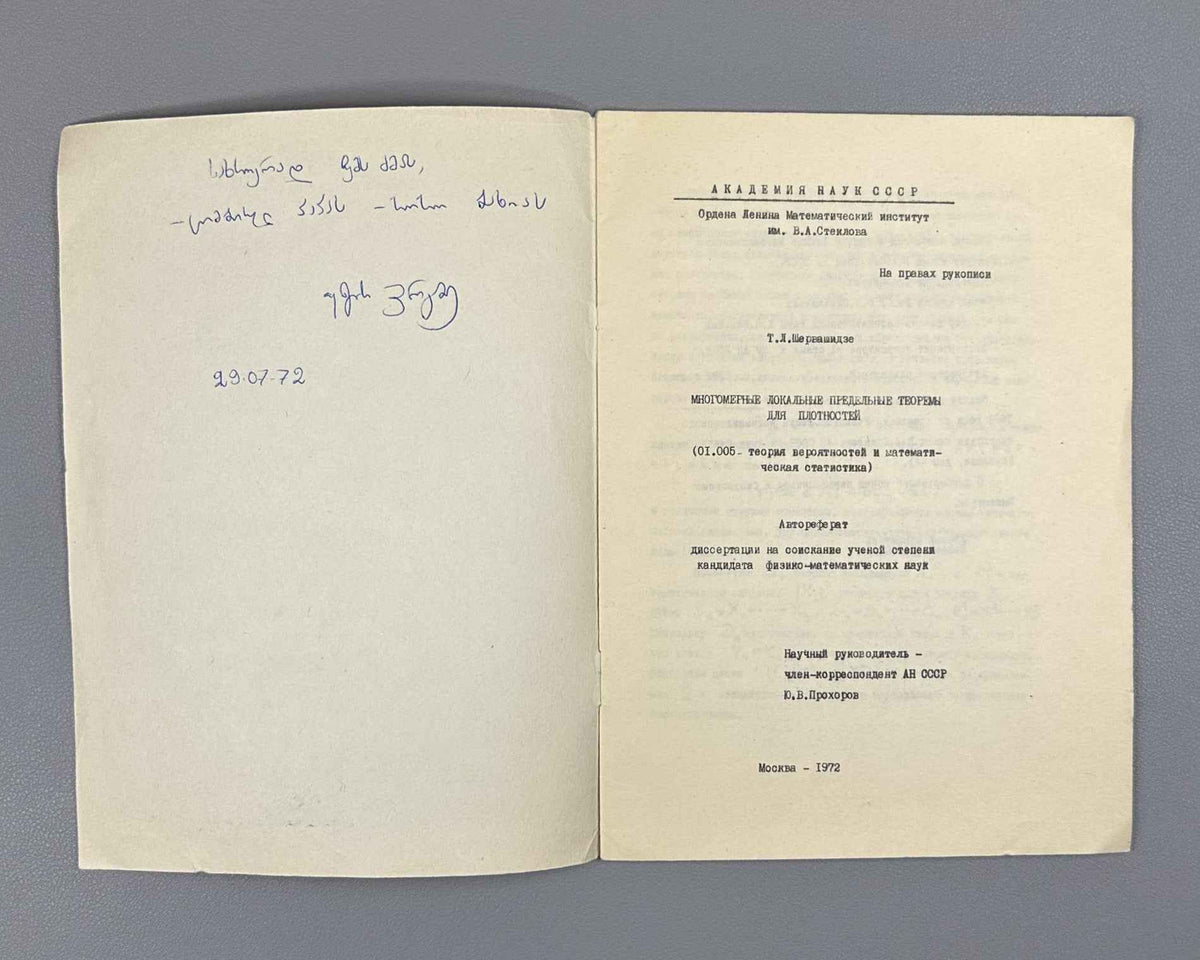 სახსოვრად ჩემს ძმას,
29.07.72
АКАДЕМИЯ НАУК СССР
Ордена Ленина Математический институт
им. В.А.Стеклова
На правах рукописи
Т.Л.Шервашидзе
МНОГОМЕРНЫЕ ЛОКАЛЬНЫЕ ПРЕДЕЛЬНЫЕ ТЕОРЕМЫ
ДЛЯ ПЛОТНОСТЕЙ
(01.005- теория вероятностей и математи-
ческая статистика)
Автореферат
диссертации на соискание ученой степени
кандидата физико-математических наук
Научный руководитель -
член-корреспондент АН СССР
Ю.В.Прохоров
Москва - 1972